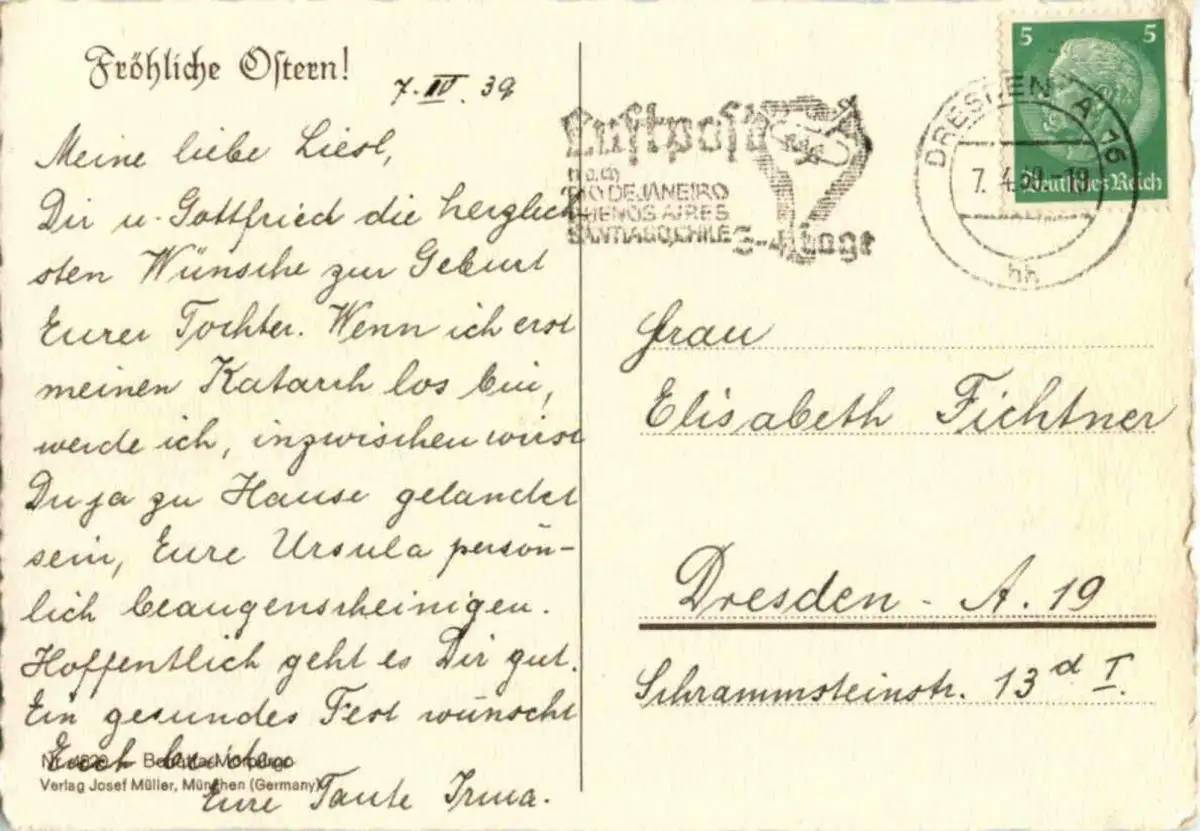 Fröhliche Ostern!
7. IV. 39
Meine liebe Liesl,
Dir u. Gottfried die herzlich
sten Wünsche zur Geburt
Eurer Tochter. Wenn ich erst
meinen Katarrh los bin,
werde ich, inzwischen wirst
Du ja zu Hause gelandet
sein, Eure Ursula persön-
lich beaugenscheinigen.
Hoffentlich geht es Dir gut.
Ein gesundes Fest wünscht
Euch
Eure Tante Irma.
Verlag Josef Müller, München (Germany)
Luftpost
nach
RIO DE JANEIRO
BUENOS AIRES
SANTIAGO, CHILE
Tage
DRESDEN A 16
7. 4. 39 - 19
hh
5 5
Deutsches Reich
Frau
Elisabeth Fichtner
Dresden - A. 19
Schrammsteinstr. 13 d I.